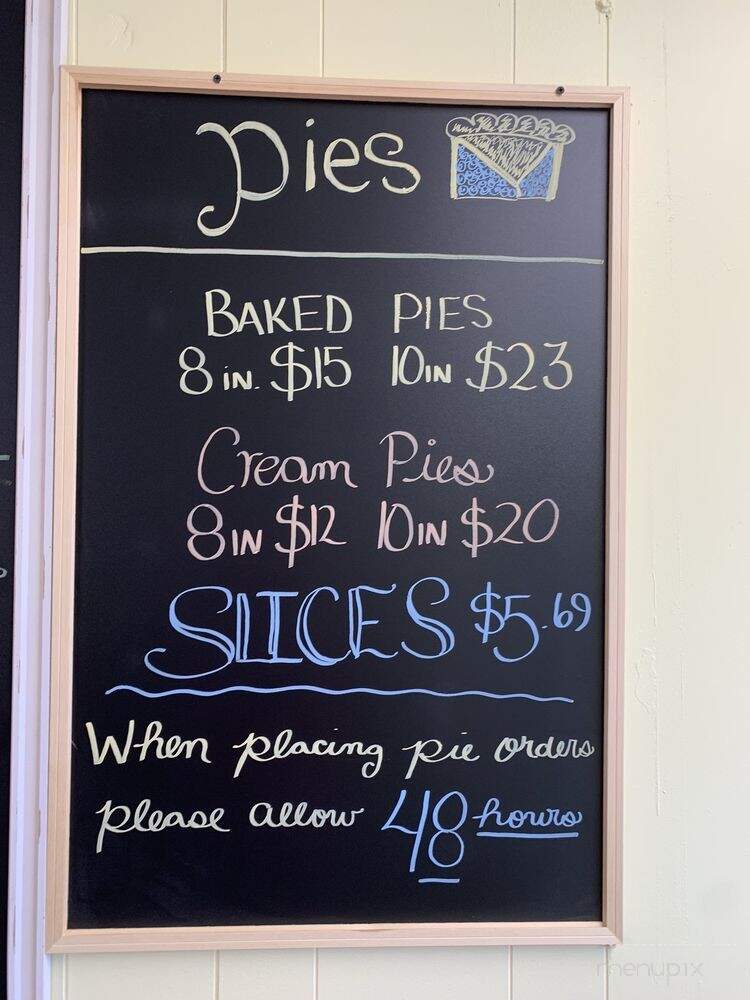 Pies
BAKED PIES
8 IN. $15 10 IN $23
Cream Pies
8 IN $12 10 IN $20
SLICES $5.69
When placing pie orders
please allow 48 hours
menupix